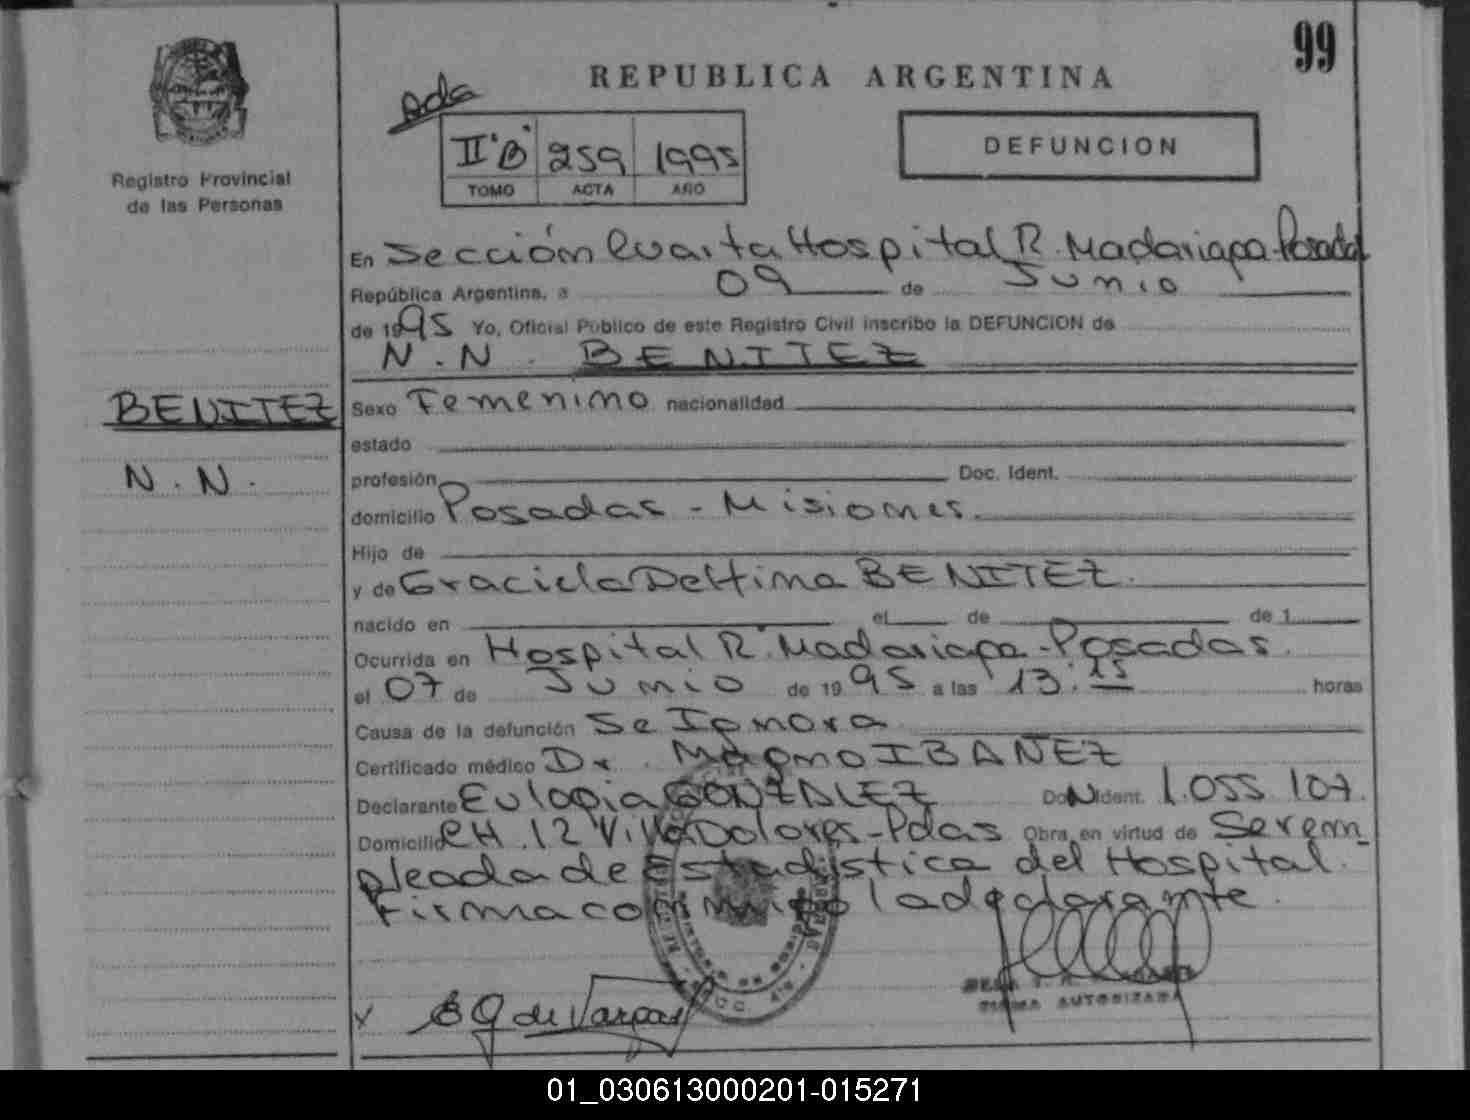 99
REPUBLICA ARGENTINA
Ada
II "B" 259 1995
TOMO ACTA AÑO
DEFUNCION
Registro Provincial
de las Personas
En Sección Cuarta Hospital R. Madariaga-Posadas
República Argentina, a 09 de Junio
de 1995 Yo, Oficial Público de este Registro Civil inscribo la DEFUNCION de
N.N. BENITEZ
BENITEZ
N.N.
Sexo Femenino nacionalidad
estado
profesión Doc. Ident.
domicilio Posadas - Misiones.
Hijo de
y de Graciela Delfina BENITEZ.
nacido en el de de 1
Ocurrida en Hospital R. Madariaga-Posadas.
el 07 de Junio de 1995 a las 13:15 horas
Causa de la defunción Se Ignora
Certificado médico Dr. Magno IBAÑEZ
Declarante Eulogia GONZALEZ Doc. Ident. 1.055.107.
Domicilio CH. 12 Villa Dolores-Pdas Obra en virtud de Ser em
pleada de Estadistica del Hospital.-
Firma conmigo la declarante.
X E G de Vargas
FIRMA AUTORIZADA
01_030613000201-015271